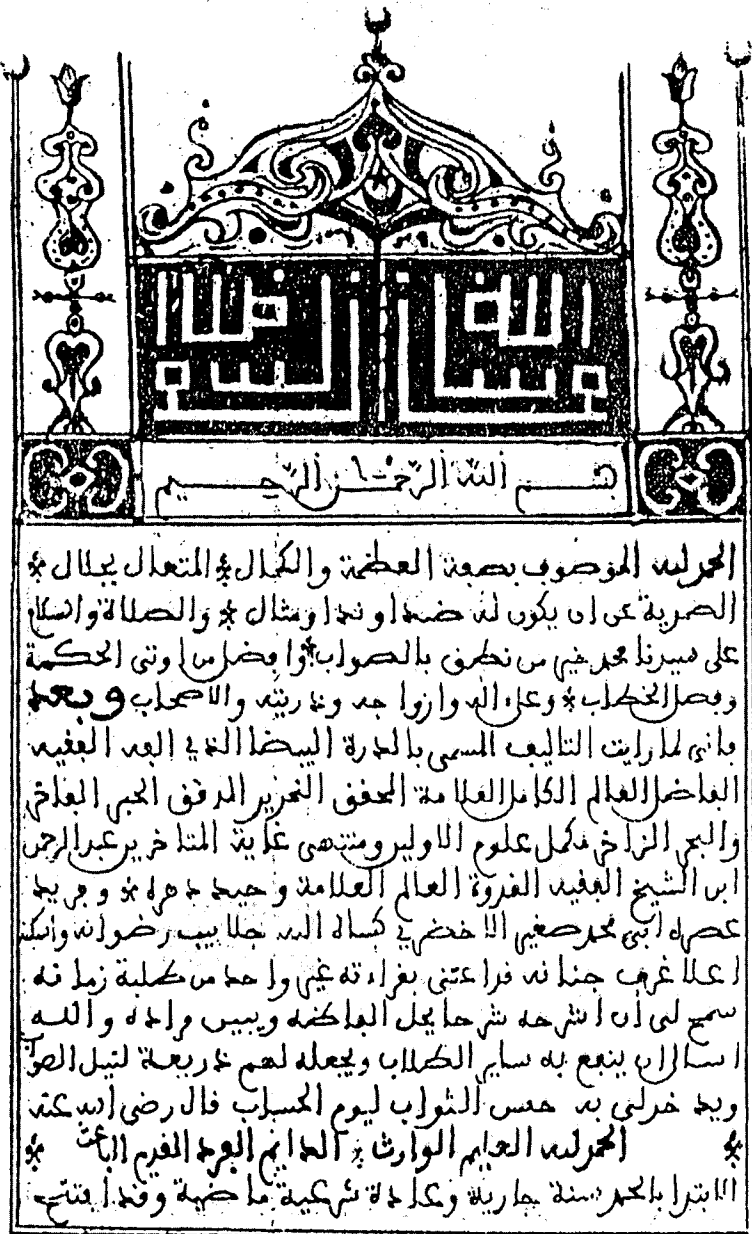 بسم الله الرحمن الرحيم
بسم الله الرحمن الرحيم
الحمد لله الموصوف بصفة العظمة والكمال * المتعال بجلال *
الصمدية عن ان يكون له ضدا وندا ومثال * والصلاة والسلام
على سيدنا محمد خير من نطق بالصواب * وافضل من اوتي الحكمة
وفصل الخطاب * وعلى اله وازواجه وذريته والاصحاب وبعد
فاني لما رايت التاليف المسمى بالدرة البيضا الذي الفه الفقيه
الفاضل العالم الكامل العلامة المحقق النحرير المدقق الحبر الفاخر
والبحر الزاخر مكمل علوم الاولين ومنتهى غاية المتاخرين عبد الرحمن
ابن الشيخ الفقيه القدوة العالم العلامة وحيد دهره * وفريد
عصره ابي محمد صغير الاخضري كساه الله جلابيب رضوانه واسكنه
اعلا غرف جنانه قد اعتنى بقراءته غير واحد من طلبة زمانه
سمح لي ان اشرحه شرحا يحل الفاظه ويبين مراده والله
اسال ان ينفع به ساير الطلاب ويجعله لهم ذريعة لنيل الصواب
ويدخر لي به حسن الثواب ليوم الحساب قال رضي الله عنه
* الحمد لله العليم الوارث * الدايم الفرد القديم الباعث *
الابتدا بالحمد سنة جارية وعادة شرعية ماضية وقد افتتح